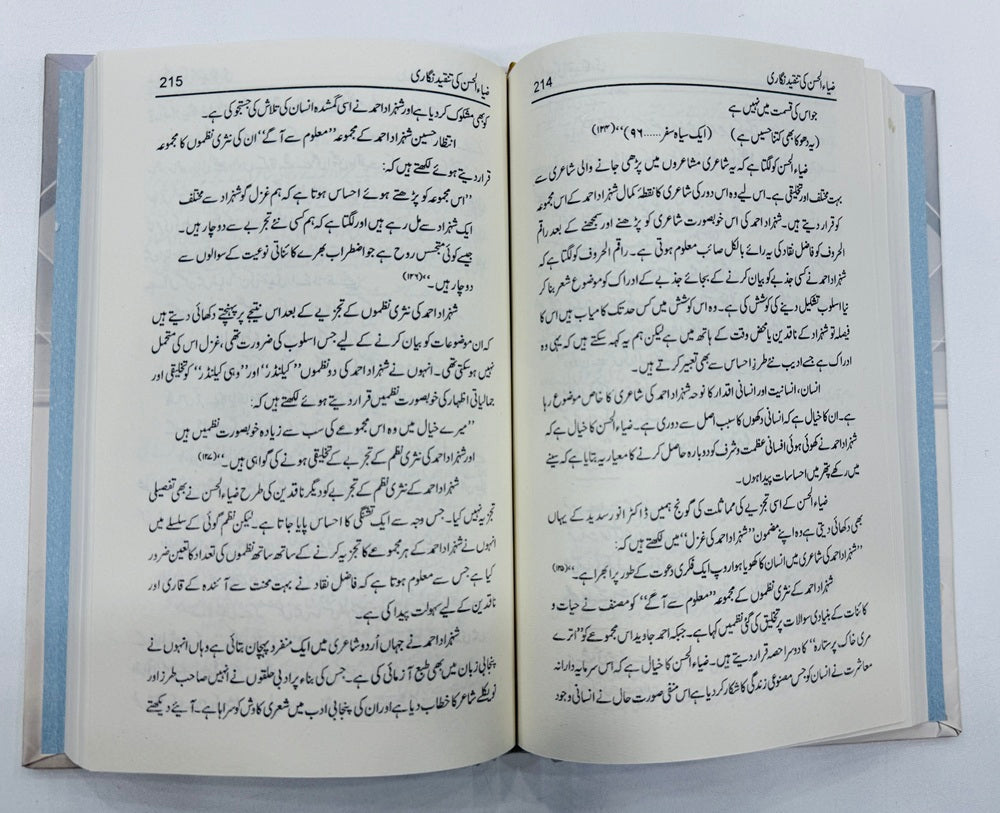 ضیاء الحسن کی تنقید نگاری 214
جو اس کی قسمت میں نہیں ہے
(یہ دھوکا بھی کتنا حسیں ہے) (ایک سیاہ سفر.....۹۶)‘‘(۱۳۴)
ضیاء الحسن کو لگتا ہے کہ یہ شاعری مشاعروں میں پڑھی جانے والی شاعری سے
بہت مختلف اور تخلیقی ہے۔ اس لیے وہ اس دور کی شاعری کا نقطۂ کمال شہزاد احمد کے اس مجموعہ
کو قرار دیتے ہیں۔ شہزاد احمد کی اس خوبصورت شاعری کو پڑھنے اور سمجھنے کے بعد راقم
الحروف کو فاضل نقاد کی یہ رائے بالکل صائب معلوم ہوتی ہے۔ راقم الحروف کو لگتا ہے کہ
شہزاد احمد نے کسی جذبے کو بیان کرنے کے بجائے جذبے کے ادراک کو موضوع شعر بنا کر
نیا اسلوب تشکیل دینے کی کوشش کی ہے۔ وہ اس کوشش میں کس حد تک کامیاب ہیں اس کا
فیصلہ تو شہزاد کے ناقدین یا محض وقت کے ہاتھ میں ہے لیکن ہم یہ کہہ سکتے ہیں کہ یہی وہ
ادراک ہے جسے ادیب نئے طرز احساس سے بھی تعبیر کرتے ہیں۔
انسان، انسانیت اور انسانی اقدار کا نوحہ شہزاد احمد کی شاعری کا خاص موضوع رہا
ہے۔ ان کا خیال ہے کہ انسانی دکھوں کا سبب اصل سے دوری ہے۔ ضیاء الحسن کا خیال ہے کہ
شہزاد احمد نے کھوئی ہوئی انسانی عظمت و شرف کو دوبارہ حاصل کرنے کا معیار یہ بتایا ہے کہ سینے
میں رکھے پتھر میں احساسات پیدا ہوں۔
ضیاء الحسن کے اسی تجزیے کی مماثلت کی گونج ہمیں ڈاکٹر انور سدید کے یہاں
بھی دکھائی دیتی ہے وہ اپنے مضمون ’’شہزاد احمد کی غزل‘‘ میں لکھتے ہیں کہ:
’’شہزاد احمد کی شاعری میں انسان کا کھویا ہوا روپ ایک فکری دعوت کے طور پر ابھرا ہے۔‘‘(۱۳۵)
شہزاد احمد کے نثری نظموں کے مجموعہ ’’معلوم سے آگے‘‘ کو مصنف نے حیات و
کائنات کے بنیادی سوالات پر تخلیق کی گئی نظمیں کہا ہے۔ جبکہ احمد جاوید اس مجموعے کو ’’اترے
مری خاک پر ستارہ‘‘ کا دوسرا حصہ قرار دیتے ہیں۔ ضیاء الحسن کا خیال ہے کہ اس سرمایہ دارانہ
معاشرت نے انسان کو جس مصنوعی زندگی کا شکار کر دیا ہے اس منفی صورت حال نے انسانی وجود
ضیاء الحسن کی تنقید نگاری 215
کو بھی مشکوک کر دیا ہے اور شہزاد احمد نے اسی گمشدہ انسان کی تلاش کی جستجو کی ہے۔
انتظار حسین شہزاد احمد کے مجموعہ ’’معلوم سے آگے‘‘ ان کی نثری نظموں کا مجموعہ
قرار دیتے ہوئے لکھتے ہیں کہ:
’’اس مجموعہ کو پڑھتے ہوئے احساس ہوتا ہے کہ ہم غزل گو شہزاد سے مختلف
ایک شہزاد سے مل رہے ہیں اور لگتا ہے کہ ہم کسی نئے تجربے سے دوچار ہیں۔
جیسے کوئی متجسس روح ہے جو اضطراب بھرے کائناتی نوعیت کے سوالوں سے
دوچار ہیں۔‘‘(۱۳۶)
شہزاد احمد کی نثری نظموں کے تجزیے کے بعد اس نتیجے پر پہنچتے دکھائی دیتے ہیں
کہ ان موضوعات کو بیان کرنے کے لیے جس اسلوب کی ضرورت تھی، غزل اس کی متحمل
نہیں ہو سکتی تھی۔ انہوں نے شہزاد احمد کی دو نظموں ’’کیلنڈر‘‘ اور ’’وہی کیلنڈر‘‘ کو تخلیقی اور
جمالیاتی اظہار کی خوبصورت نظمیں قرار دیتے ہوئے لکھتے ہیں کہ:
’’میرے خیال میں وہ اس مجموعے کی سب سے زیادہ خوبصورت نظمیں ہیں
اور شہزاد احمد کی نثری نظم کے تجربے کے تخلیقی ہونے کی گواہی ہیں۔‘‘(۱۳۷)
شہزاد احمد کے نثری نظم کے تجربے کو دیگر ناقدین کی طرح ضیاء الحسن نے بھی تفصیلی
تجزیہ نہیں کیا۔ جس وجہ سے ایک تشنگی کا احساس پایا جاتا ہے۔ لیکن نظم گوئی کے سلسلے میں
انہوں نے شہزاد احمد کے ہر مجموعے کا تجزیہ کرنے کے ساتھ ساتھ نظموں کی تعداد کا تعین ضرور
کیا ہے جس سے معلوم ہوتا ہے کہ فاضل نقاد نے بہت محنت سے آئندہ کے قاری اور
ناقدین کے لیے سہولت پیدا کی ہے۔
شہزاد احمد نے جہاں اُردو شاعری میں ایک منفرد پہچان بتائی ہے وہاں انہوں نے
پنجابی زبان میں بھی طبع آزمائی کی ہے۔ جس کی بناء پر ادبی حلقوں نے انہیں صاحب طرز اور
نویکلے شاعر کا خطاب دیا ہے اور ان کی پنجابی ادب میں شعری کاوش کو سراہا ہے۔ آئیے دیکھتے